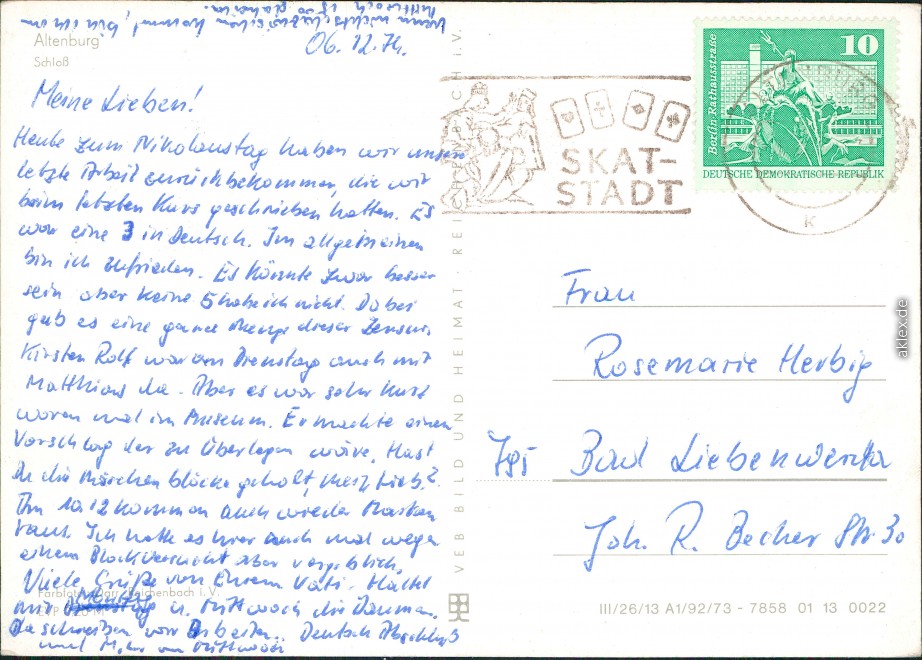 wenn nichts dazwischen kommt, bin ich am
Mittwoch 15.00 daheim.
Altenburg
Schloß
06.12.74.
Meine Lieben!
Heute zum Nikolaustag haben wir unsere
letzte Arbeit zurückbekommen, die wir
beim letzten Kurs geschrieben hatten. Es
war eine 3 in Deutsch. Im allgemeinen
bin ich zufrieden. Es könnte zwar besser
sein aber keine 5 habe ich nicht. Dabei
gab es eine ganze Menge dieser Zensur.
Rolf war am Dienstag auch mit
Matthias da. Aber es war sehr kurz
waren mal im Museum. Er machte einen
Vorschlag der zu überlegen wäre. Hast
du die Märchenblöcke geholt, Herz Lieb?
Am 10.12 kommen auch wieder Marken
raus. Ich hatte es hier auch mal wegen
einem Block versucht aber vergeblich.
Viele Grüße von Eurem Vati. Haltet
mir u. Mittwoch die Daumen.
Da schreiben wir Arbeiten. Deutsch
und am Mittwoch
Farbfoto: Darr, Reichenbach i. V.
VEB BILD UND HEIMAT REICHENBACH i. V.
SKAT-
STADT
10
Berlin, Rathausstraße
DEUTSCHE DEMOKRATISCHE REPUBLIK
K
Frau
Rosemarie Herbig
795 Bad Liebenwerda
Joh. R. Becher Str. 30
III/26/13 A1/92/73 - 7858 01 13 0022
aklex.de